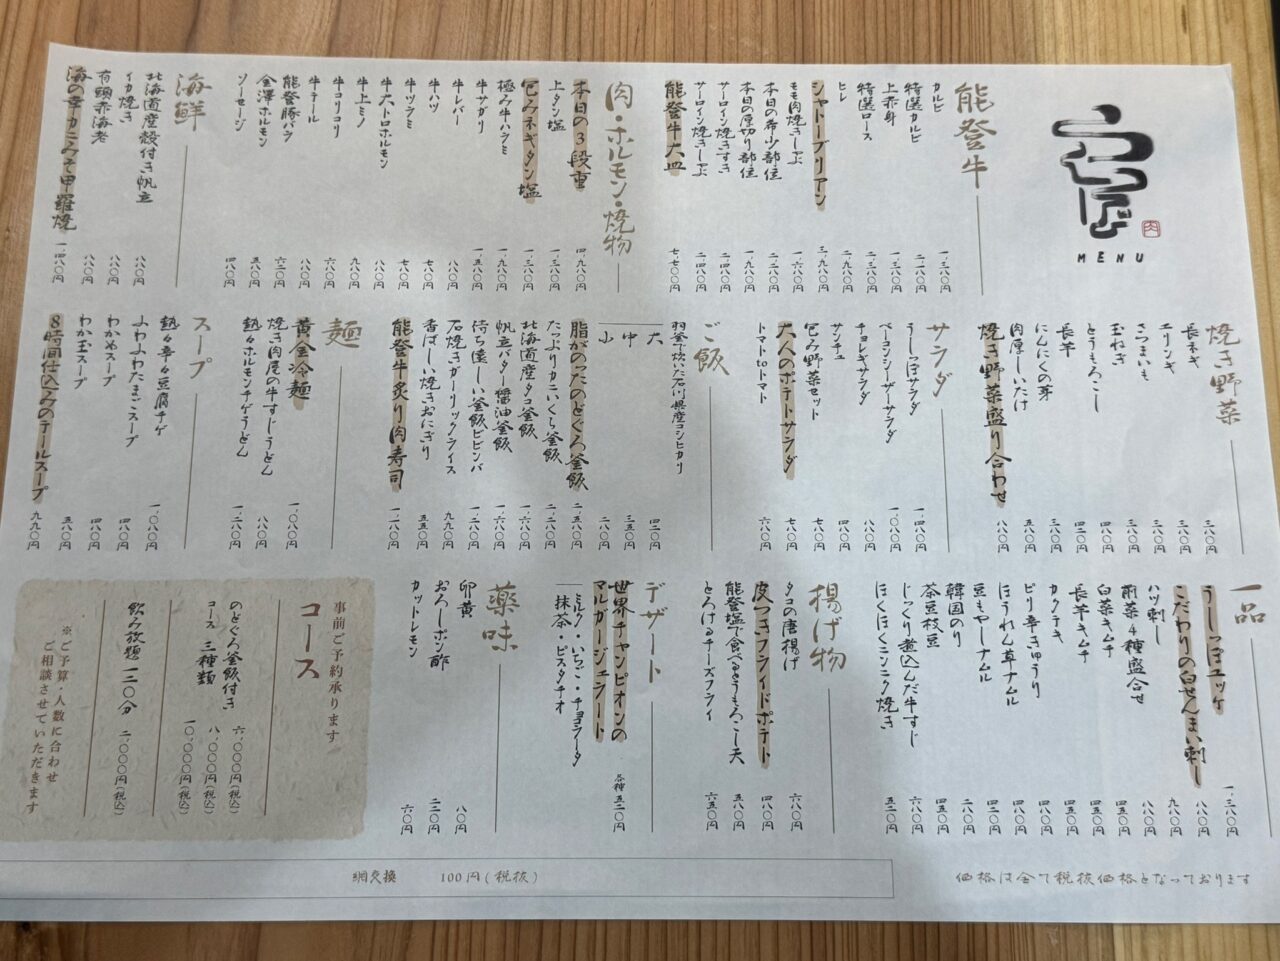 肉
MENU
能登牛
カルビ 一、三八〇円
特選カルビ 二、一八〇円
上赤身 一、三八〇円
特選ロース 二、三八〇円
ヒレ 二、九八〇円
シャトーブリアン
モモ肉焼きしゃぶ 一、六八〇円
本日の希少部位
本日の厚切り部位
サーロイン焼きすき
サーロイン焼きしゃぶ
能登牛大皿 七、七〇〇円
肉・ホルモン・焼物
本日の3段重 四、九八〇円
上タン塩
包みネギタン塩
極み牛ハラミ
牛サガリ
牛レバー
牛ハツ 七八〇円
牛ツラミ 七八〇円
牛大トロホルモン 八八〇円
牛上ミノ 九八〇円
牛コリコリ
牛テール
能登豚バラ
金澤ホルモン 五八〇円
ソーセージ 四八〇円
海鮮
北海道産殻付き帆立 八八〇円
イカ焼き 八八〇円
有頭赤海老 八八〇円
海の幸カニみそ甲羅焼 一、四八〇円
焼き野菜
長ネギ 三八〇円
エリンギ 三八〇円
さつまいも 三八〇円
玉ねぎ 三八〇円
とうもろこし 四八〇円
長芋
にんにくの芽 三八〇円
肉厚しいたけ 五八〇円
焼き野菜盛り合わせ 八八〇円
サラダ
うしっぽサラダ
ベーコンシーザーサラダ
チョレギサラダ 八八〇円
サンチュ 四八〇円
包み野菜セット 七八〇円
大人のポテトサラダ 七八〇円
トマトtoトマト 六八〇円
ご飯
羽釜で炊いた石川県産コシヒカリ
大
中
小
脂がのったのどぐろ釜飯
たっぷりカニいくら釜飯
北海道産タコ釜飯
帆立バター醤油釜飯
待ち遠しい釜飯ビビンバ
石焼きガーリックライス 九九〇円
香ばしい焼きおにぎり 五五〇円
能登牛炙り肉寿司 一、二八〇円
麺
黄金冷麺 一、〇八〇円
焼き肉屋の牛すじうどん 八八〇円
熱々ホルモンチゲうどん 一、二八〇円
スープ
熱々辛々豆腐チゲ 一、〇八〇円
ふわふわたまごスープ 四八〇円
わかめスープ 四八〇円
わか玉スープ 五八〇円
8時間仕込みのテールスープ 九九〇円
一品
うしっぽユッケ 一、三八〇円
こだわりの白せんまい刺し
ハツ刺し
前菜4種盛合せ 八八〇円
白菜キムチ
長芋キムチ
カクテキ
ピリ辛きゅうり
ほうれん草ナムル
豆もやしナムル
韓国のり
茶豆枝豆 四五〇円
じっくり煮込んだ牛すじ 六八〇円
ほくほくニンニク焼き
揚げ物
タコの唐揚げ 六八〇円
皮つきフライドポテト 四八〇円
能登塩で食べるとうもろこし天 五八〇円
とろけるチーズフライ 六五〇円
デザート
世界チャンピオンの
マルガージェラート 各種五二〇円
ミルク・いちご・チョコラータ
抹茶・ピスタチオ
薬味
卵黄 八〇円
おろしポン酢
カットレモン 六〇円
事前ご予約承ります
コース
のどぐろ釜飯付き
コース 三種類
六、〇〇〇円(税込)
八、〇〇〇円(税込)
一〇、〇〇〇円(税込)
飲み放題 一二〇分 二、〇〇〇円(税込)
※ご予算・人数に合わせ
ご相談させていただきます
網交換 100円(税抜)
価格は全て税抜価格となっております